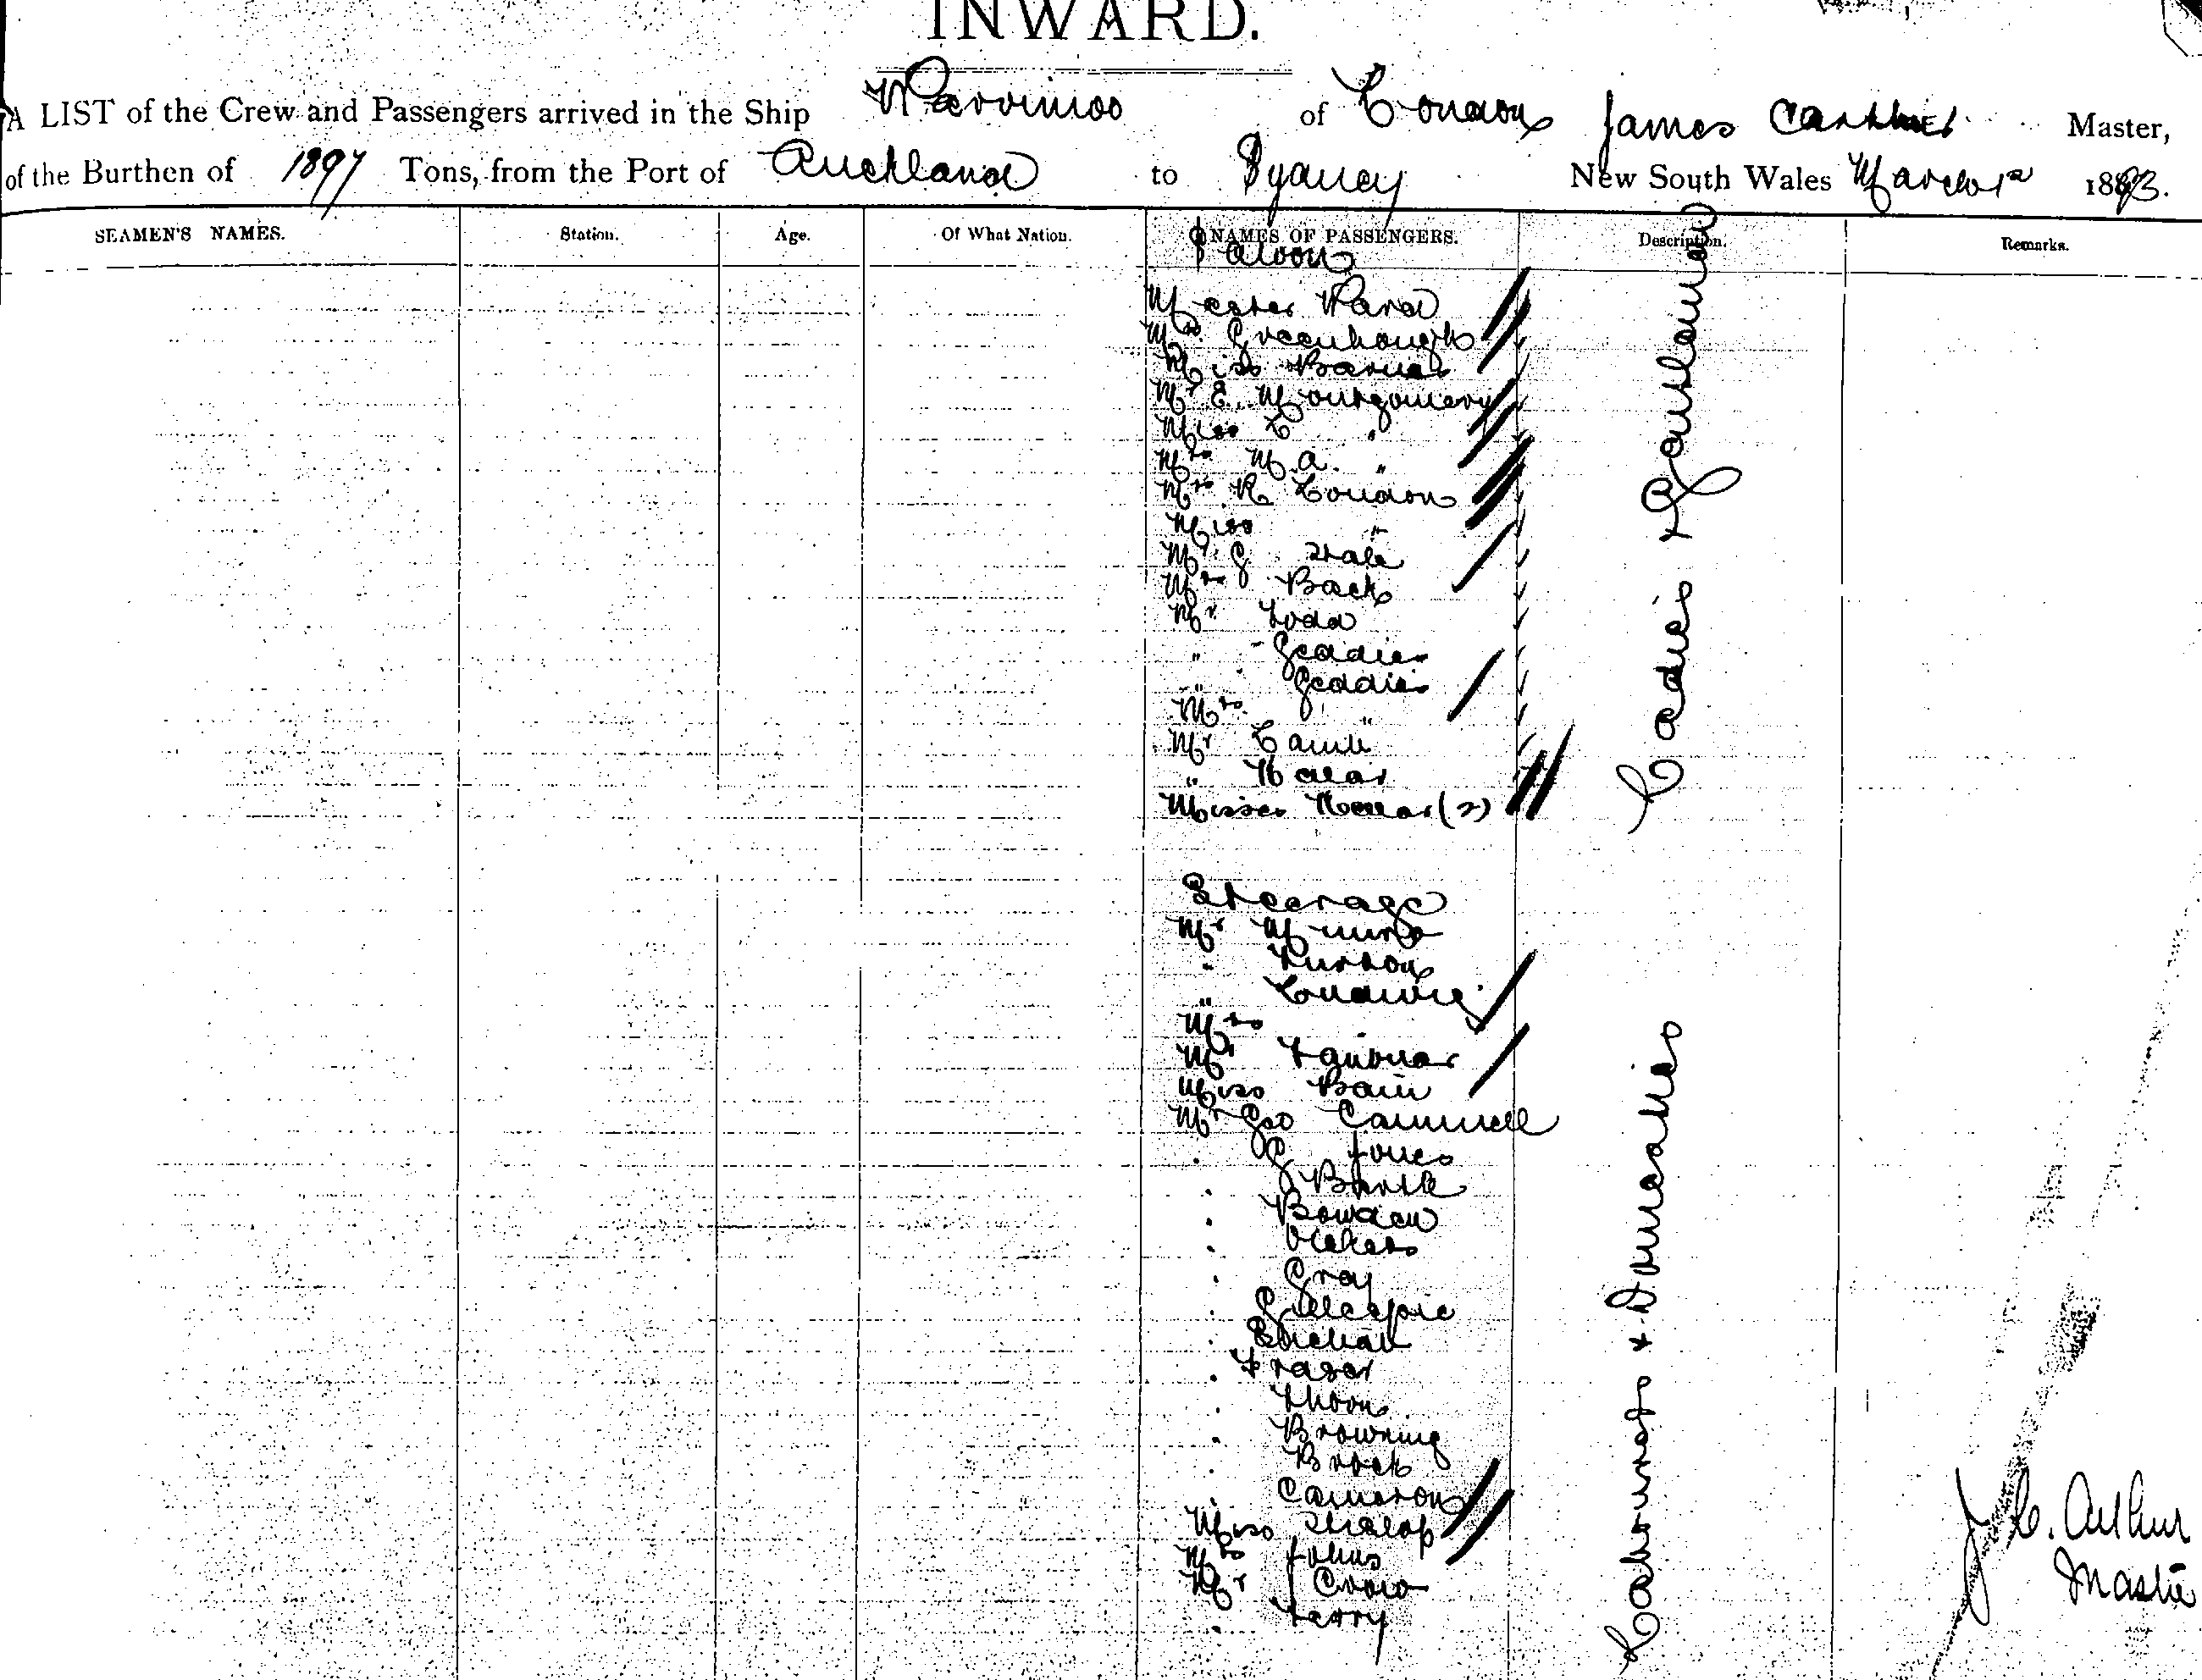 INWARD.
A LIST of the Crew and Passengers arrived in the Ship Warrimoo of London James Arthur Master,
of the Burthen of 1897 Tons, from the Port of Auckland to Sydney New South Wales March 1st 1893.
SEAMEN'S NAMES. Station. Age. Of What Nation. NAMES OF PASSENGERS. Description. Remarks.
Saloon
Master Ward
Mrs Greenhough
Miss Barnes
Mr E. Montgomery
Miss L "
Mrs M.A. "
Mrs R London
Miss "
Mr G Hale
Mrs Back
Mr Todd
" Geddies
" Geddies
Mrs "
Mr
"
Misses (2)
Ladies & Gentlemen
Steerage
Mr Munro
" Turton
" Ludwig
Mrs "
Mr
Miss Bain
Mr Geo Cammell
" G Jones
" Burke
" Bowden
" Vickers
" Gray
" Gillespie
" Buchan
" Fraser
" Thorn
" Browning
" Brock
" Cameron
Miss
Mrs Johns
Mr Crow
" Terry
Labourers & Domestics
J. C. Arthur
Master